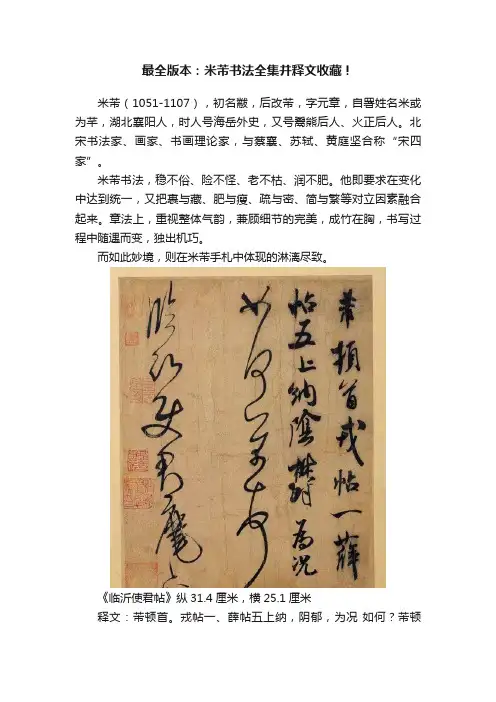 最全版本：米芾书法全集并释文收藏！
米芾（1051-1107），初名黻，后改芾，字元章，自署姓名米或
为芊，湖北襄阳人，时人号海岳外史，又号鬻熊后人、火正后人。北
宋书法家、画家、书画理论家，与蔡襄、苏轼、黄庭坚合称“宋四
家”。
米芾书法，稳不俗、险不怪、老不枯、润不肥。他即要求在变化
中达到统一，又把裹与藏、肥与瘦、疏与密、简与繁等对立因素融合
起来。章法上，重视整体气韵，兼顾细节的完美，成竹在胸，书写过
程中随遇而变，独出机巧。
而如此妙境，则在米芾手札中体现的淋漓尽致。
芾頓首戎帖一薛
帖五上納陰欝為况
如何芾頓首
臨沂使君麾下
《临沂使君帖》纵31.4厘米，横25.1厘米
释文：芾顿首。戎帖一、薛帖五上纳，阴郁，为况 如何？芾顿